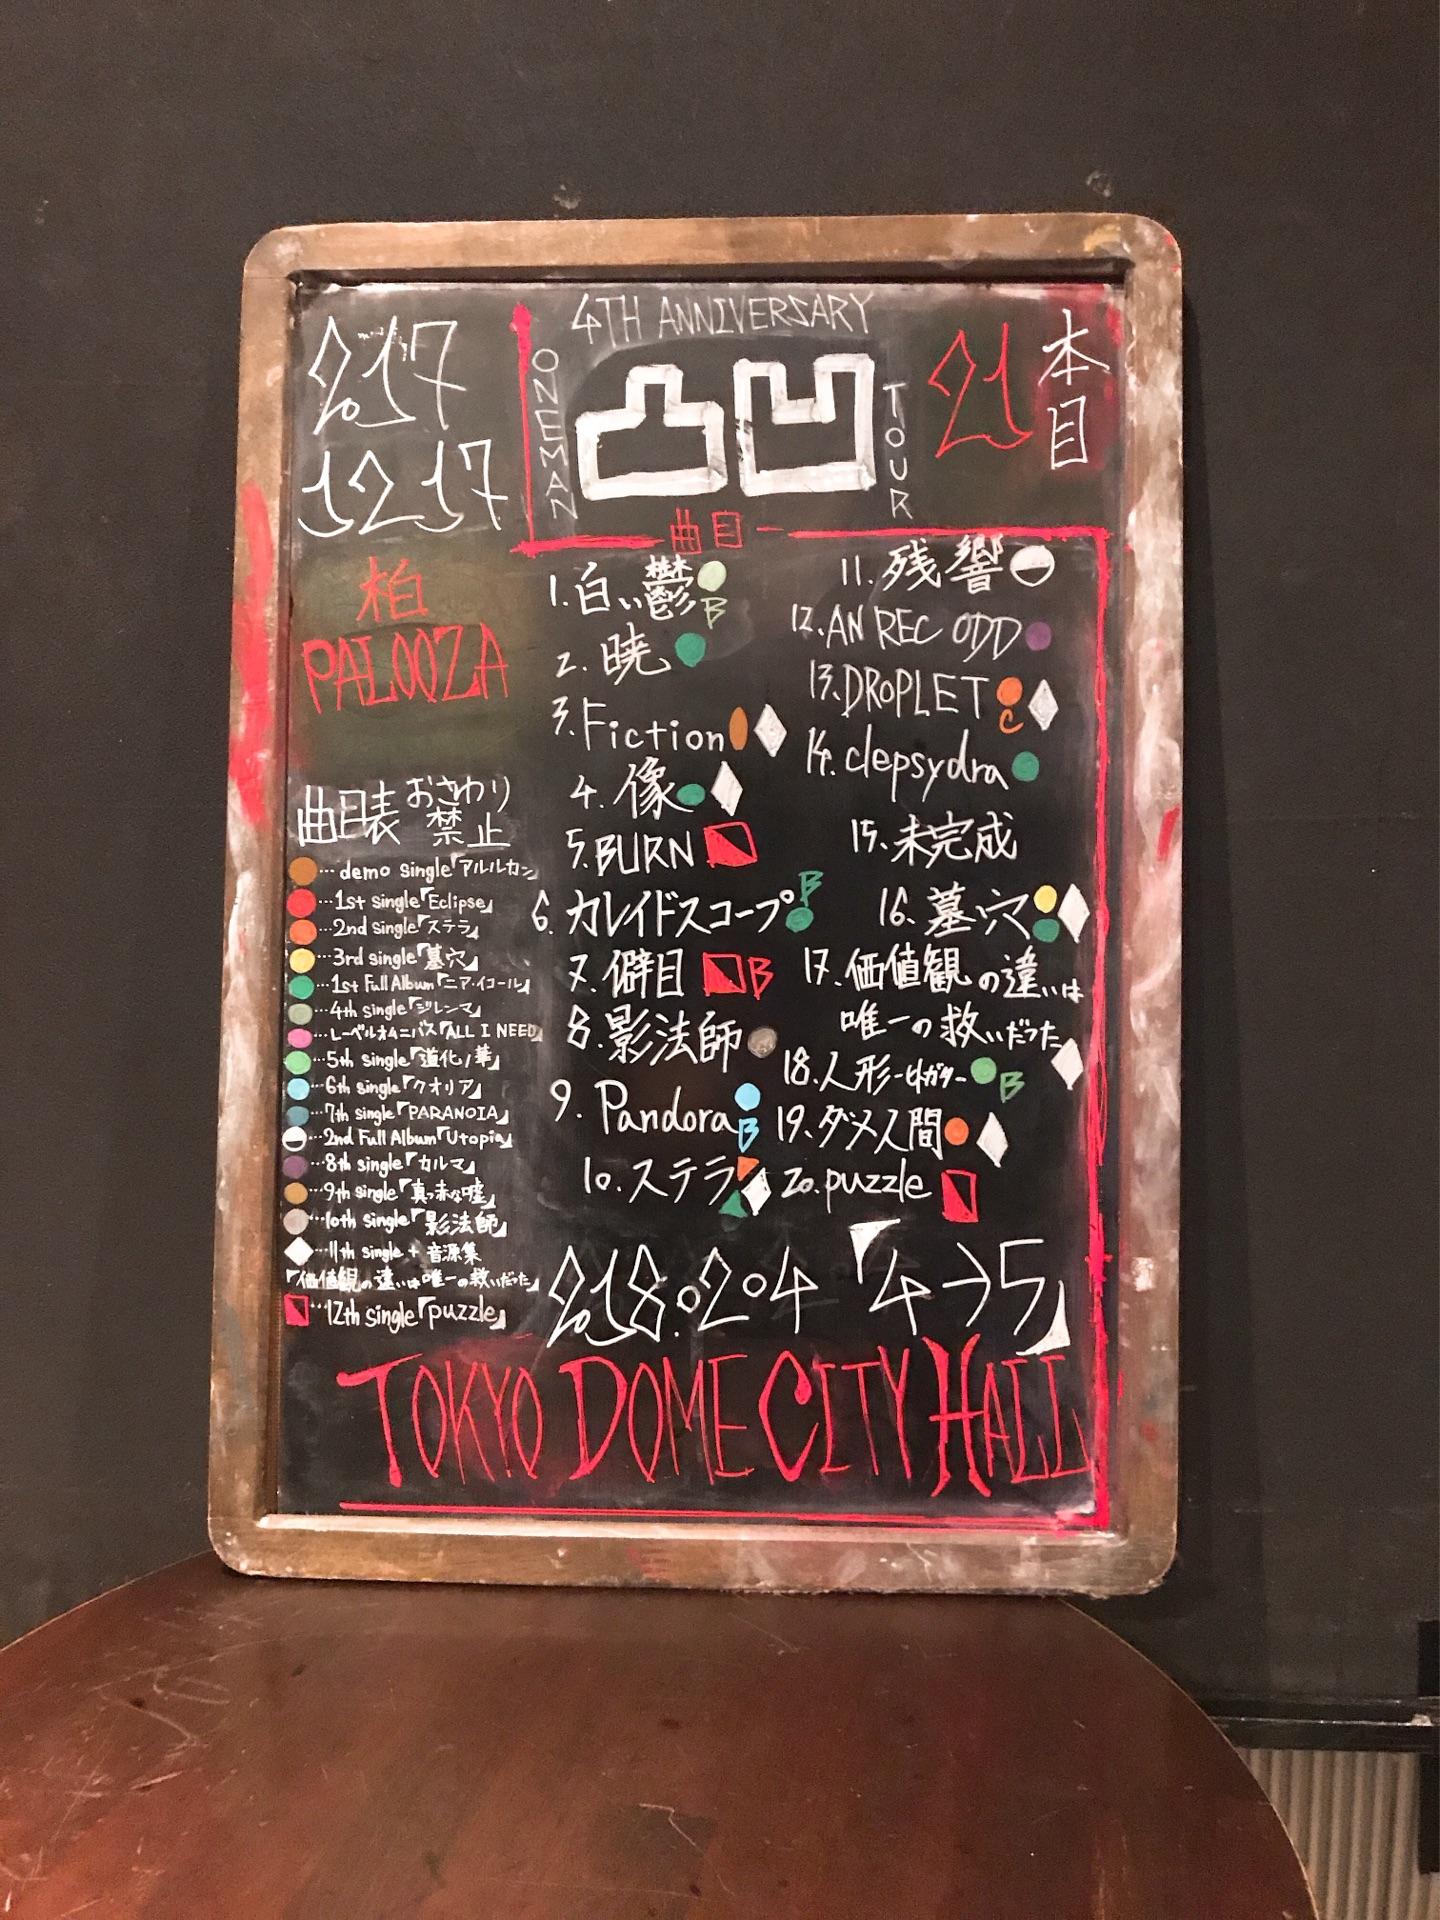 2017
12 17
4TH ANNIVERSARY
ONEMAN
凸凹
TOUR
21本目
柏
PALOOZA
曲目
1.白い鬱 B
2.暁
3.Fiction
4.像
5.BURN
6.カレイドスコープ B
7.僻目 B
8.影法師
9.Pandora B
10.ステラ
11.残響
12.AN REC ODD
13.DROPLET C
14.clepsydra
15.未完成
16.墓穴
17.価値観の違いは
唯一の救いだった
18.人形 B
19.ダメ人間
20.puzzle
曲目表 おさわり
禁止
…demo single「アルルカン」
…1st single「Eclipse」
…2nd single「ステラ」
…3rd single「墓穴」
…1st Full Album「ニア・イコール」
…4th single「ジレンマ」
…レーベルオムニバス「ALL I NEED」
…5th single「道化ノ華」
…6th single「クオリア」
…7th single「PARANOIA」
…2nd Full Album「Utopia」
…8th single「カルマ」
…9th single「真っ赤な嘘」
…10th single「影法師」
…11th single + 音源集
「価値観の違いは唯一の救いだった」
…12th single「puzzle」
2018.2.4「4→5」
TOKYO DOME CITY HALL